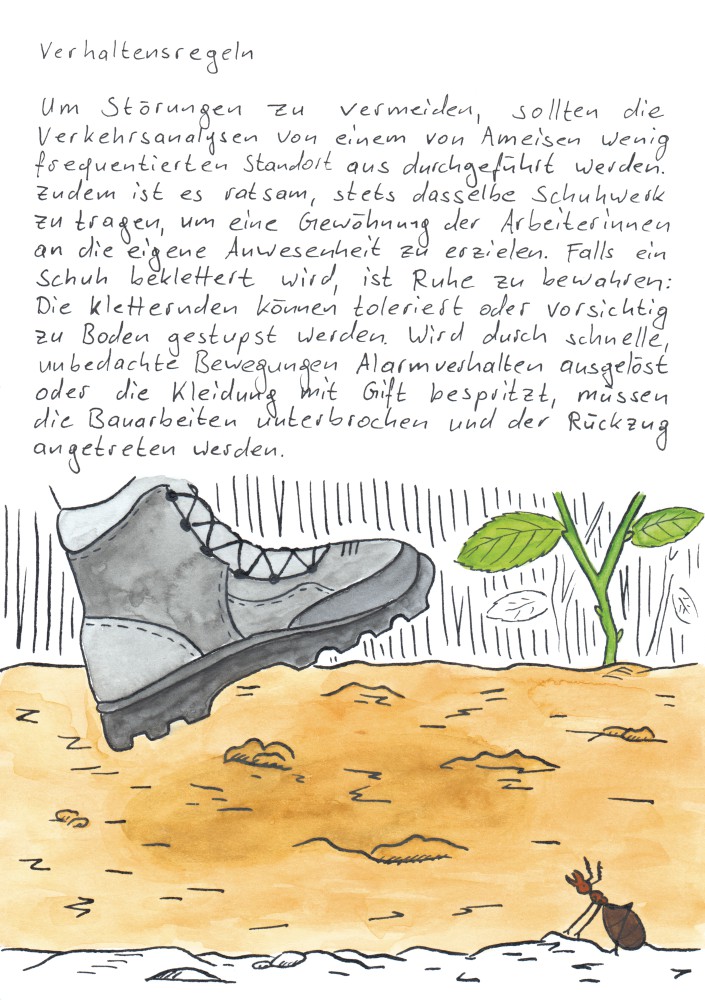 Verhaltensregeln
Um Störungen zu vermeiden, sollten die
Verkehrsanalysen von einem von Ameisen wenig
frequentierten Standort aus durchgeführt werden.
Zudem ist es ratsam, stets dasselbe Schuhwerk
zu tragen, um eine Gewöhnung der Arbeiterinnen
an die eigene Anwesenheit zu erzielen. Falls ein
Schuh beklettert wird, ist Ruhe zu bewahren:
Die Kletternden können toleriert oder vorsichtig
zu Boden gestupst werden. Wird durch schnelle,
unbedachte Bewegungen Alarmverhalten ausgelöst
oder die Kleidung mit Gift bespritzt, müssen
die Bauarbeiten unterbrochen und der Rückzug
angetreten werden.